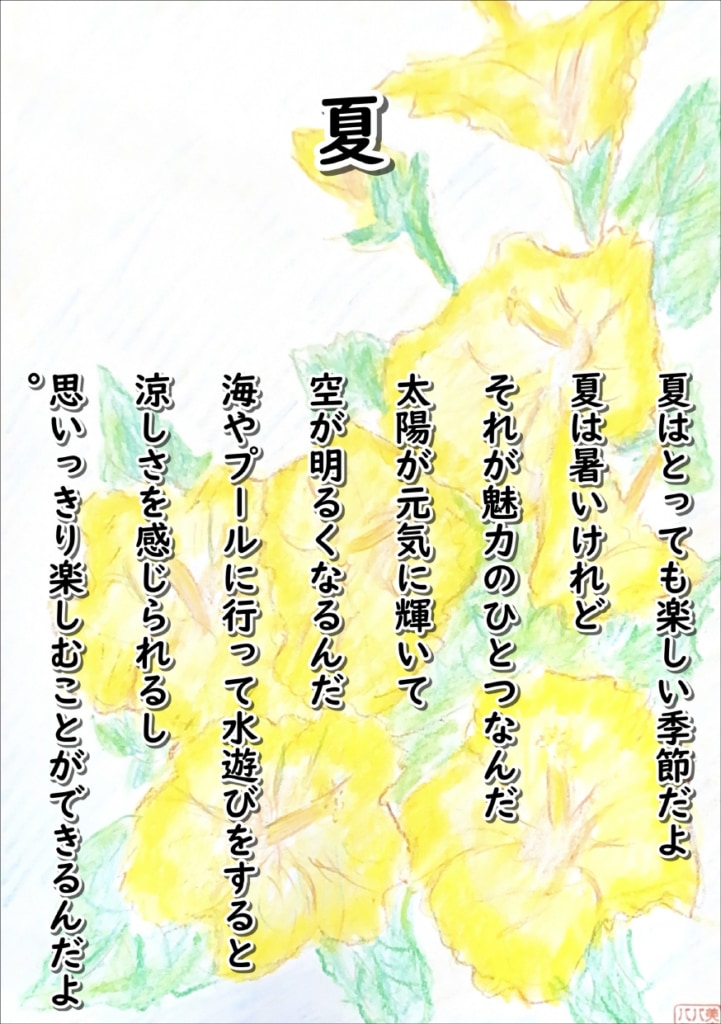 夏
夏はとっても楽しい季節だよ
夏は暑いけれど
それが魅力のひとつなんだ
太陽が元気に輝いて
空が明るくなるんだ
海やプールに行って水遊びをすると
涼しさを感じられるし
思いっきり楽しむことができるんだよ
。